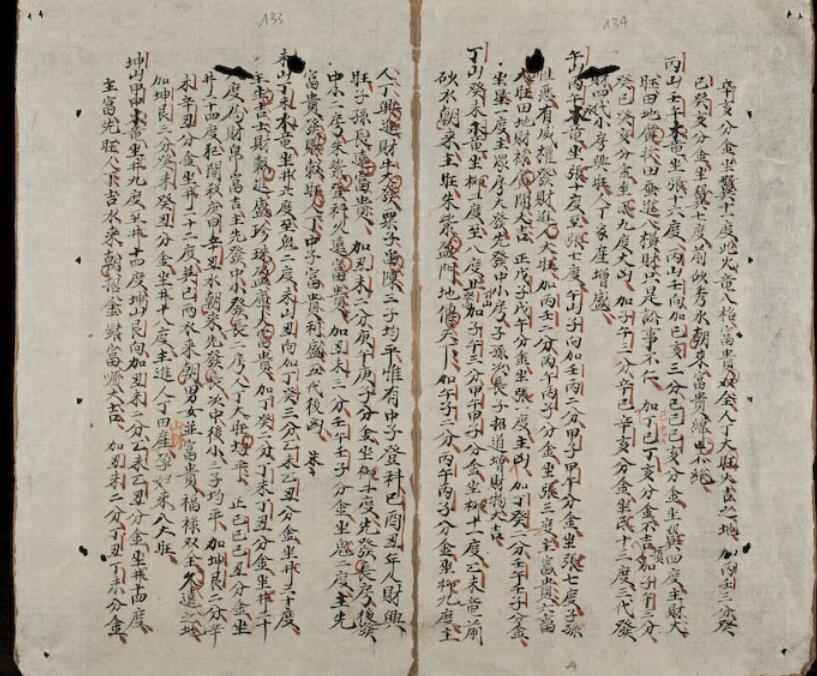 134
辛亥分金坐翼十度此火竜八格富貴双全人丁大旺大吉之地加丙壬三分癸
巳癸亥分金坐翼七度前砂秀水朝來富貴綿綿不絕
丙山壬午木竜坐張十六度丙山壬向加巳亥三分己巳己亥分金坐翼四度主財大
旺田地廣牧田蚕進八橫財只是訟事不仁加丁巳丁亥分金不吉加子午三分
癸巳癸亥分金坐九度大凶加子午二分辛巳辛亥分金坐十三度三代發
財四代小房興旺人丁家產增盛
午山丙午木竜坐張十度至張七度午山子向加壬丙二分甲子甲午分金坐張七度子孫
性惡有威權發財進人大旺加丙壬二分丙午丙子分金坐張三度主富貴六畜
大旺田地財祿人間大吉正戊子戊午分金坐張一度主凶加丁癸二分壬午壬子分金
坐星度主眾房大發先發中小房子孫次長子招道增財物大吉
丁山癸未木竜坐柳十度至八度丑加子午三分甲午甲子分金坐柳十一度乙未竜前
砂水朝來主旺朱紫盈門地傳天下加午子二分丙午丙子分金坐柳九度主
133
人丁興進財牛大發眾子三子均平惟有中子登科巳酉丑年人財興
旺子孫長遠富貴加丑未二分庚午庚子分金坐柳度先發長房後發
中小二房朱紫登科久遠富貴加丑未三分壬午壬子分金坐鬼二度主先
富貴發財穀旺人丁中子富貴利盛五代後凶
未山丁未水竜坐井六度至鬼二度未山丑向加丁癸三分乙未乙丑分金坐井三十度
主坐吉士財穀進盛珍珠盈庫大富貴加丁癸二分丁未丁丑分金坐井二十
度為財帛富吉主先發中小發長二房人丁大旺均平正己巳己丑分金坐
井二十四度犯開殺庚甲辛丑水朝來先發長次中後小三子均平加坤艮二分辛
未辛丑分金坐井二十二度巽巳丙水來朝男女並富貴福祿双全久遠之地
加坤艮三分癸未癸丑分金坐井十八度主進人丁田產孕妇來八大旺
坤山甲申水竜坐井九度至井十四度坤山艮向加丑未二分乙未乙丑分金坐井十四度
主富先旺人丁吉水來朝招金銀富濟大吉加丑未二分丁丑丁未分金